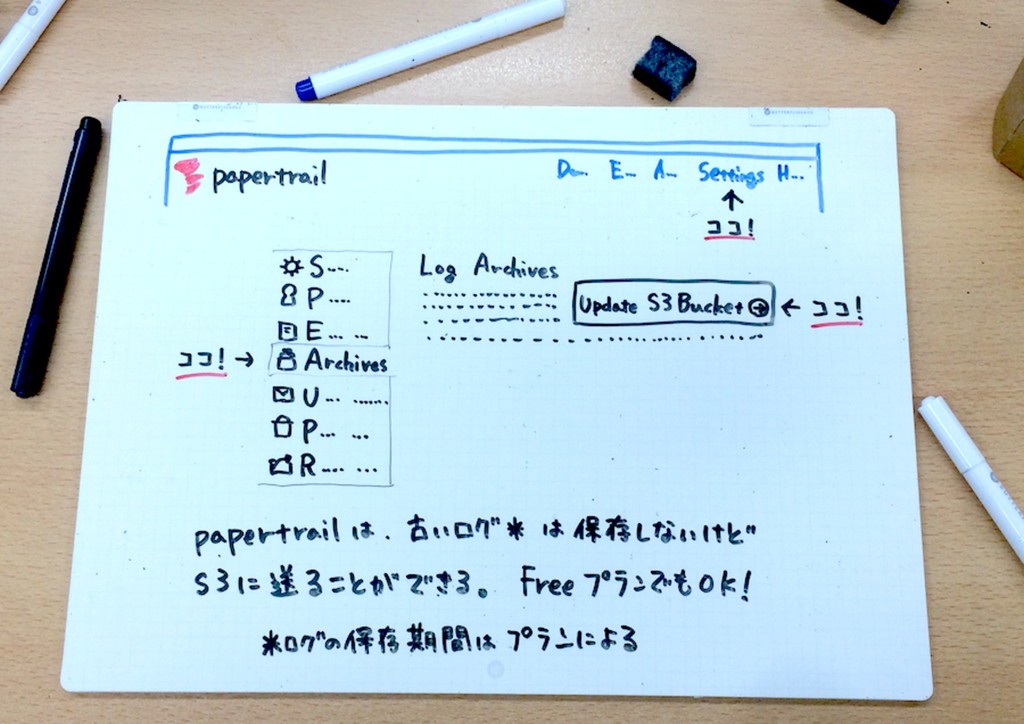 papertrail
D... E... A... Settings H...
↑
ココ!
S....
P....
E.... ..
ココ! → Archives
U... ......
P... ...
R.... ...
Log Archives
Update S3 Bucket → ← ココ!
papertrailは、古いログ*は保存しないけど
S3に送ることができる。 FreeプランでもOK!
*ログの保存期間はプランによる